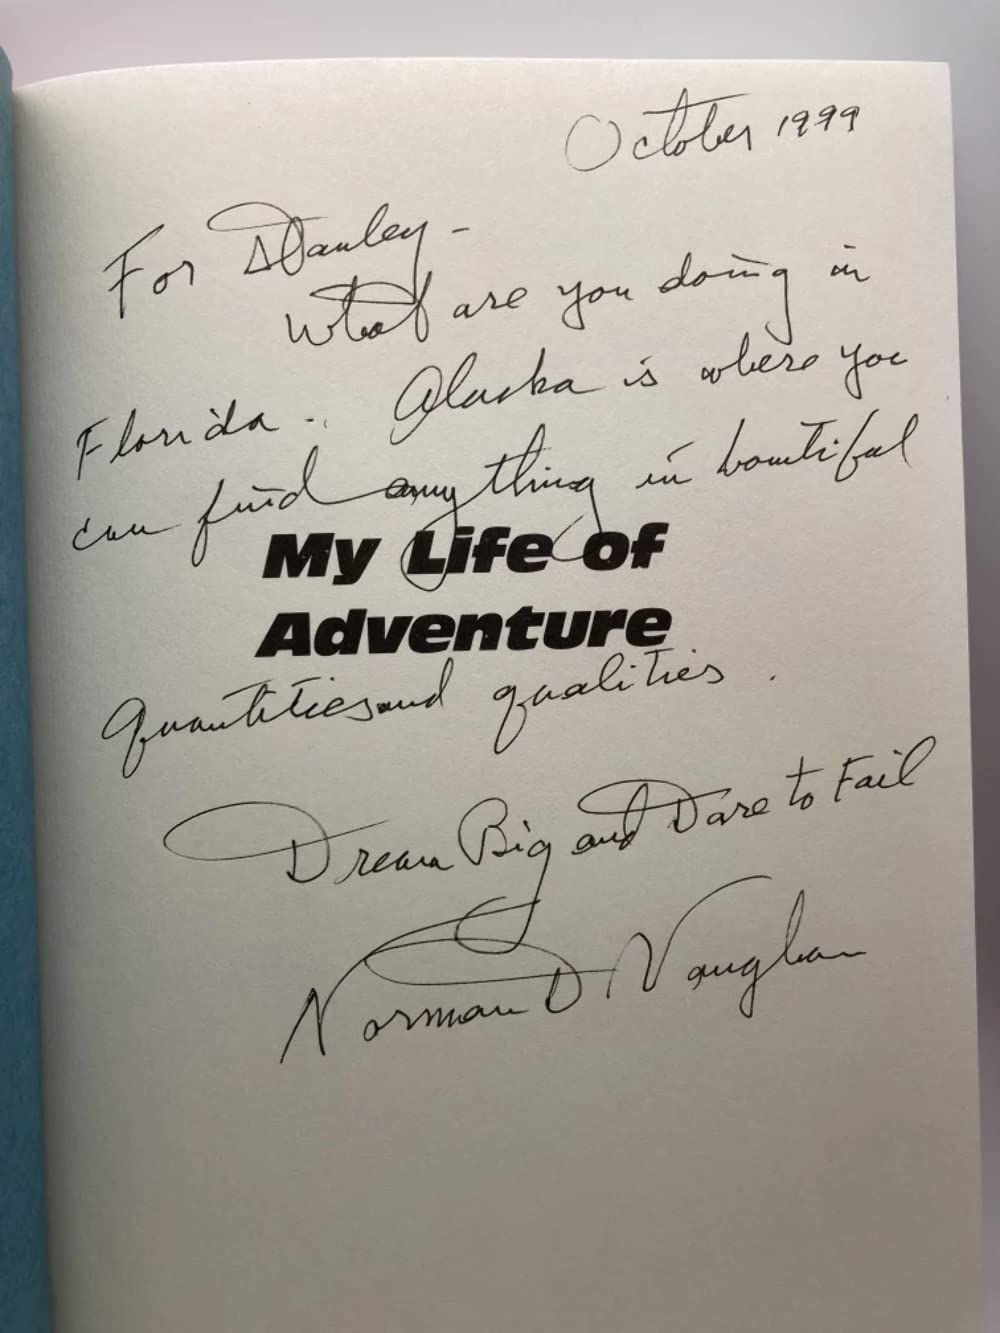 October 1999
For Stanley -
What are you doing in
Florida .. Alaska is where you
can find any thing in bountiful
My Life of
Adventure
quantities and qualities .
Dream Big and Dare to Fail
Norman D Vaughan